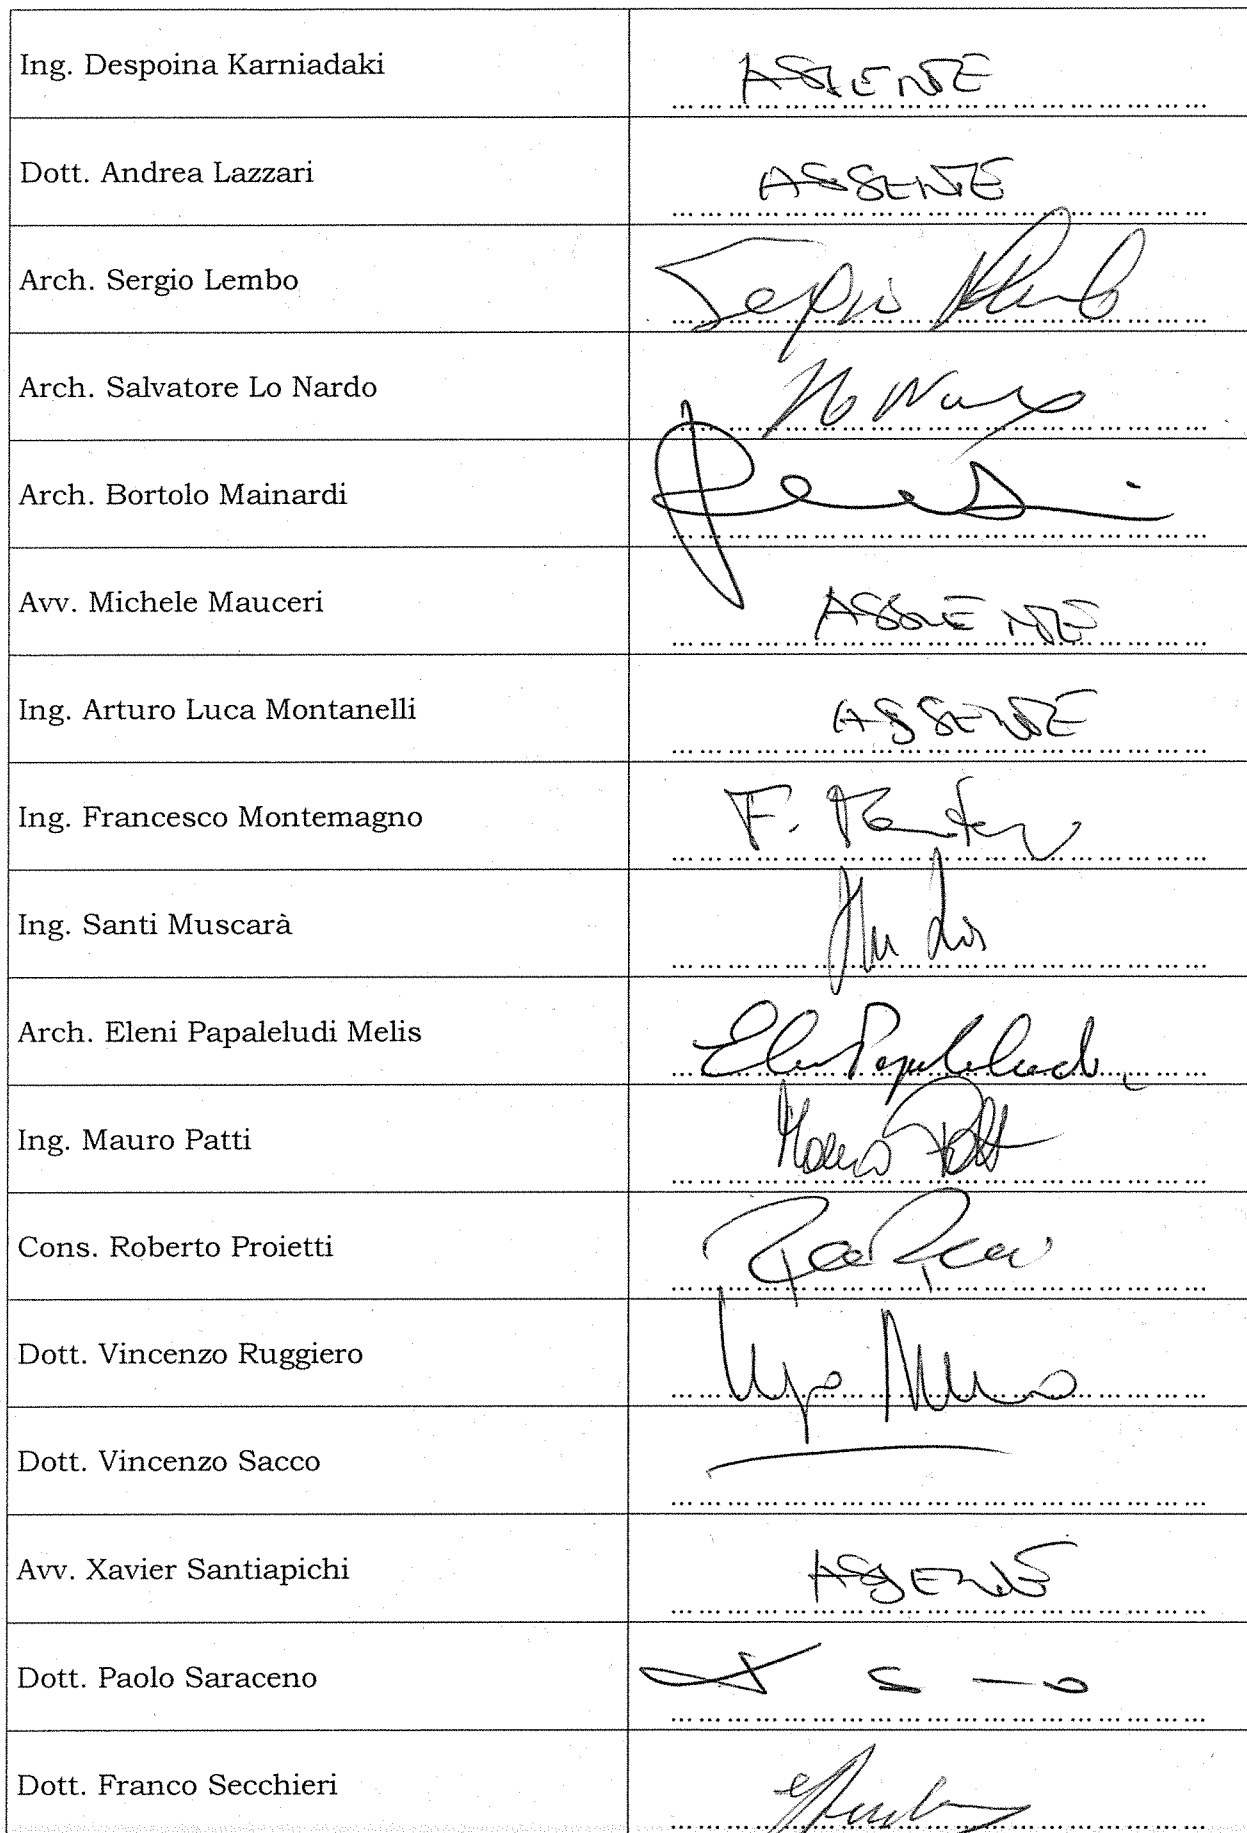 Ing. Despoina Karniadaki ASSENTE
Dott. Andrea Lazzari ASSENTE
Arch. Sergio Lembo Sergio Lembo
Arch. Salvatore Lo Nardo
Arch. Bortolo Mainardi
Avv. Michele Mauceri ASSENTE
Ing. Arturo Luca Montanelli ASSENTE
Ing. Francesco Montemagno F.
Ing. Santi Muscarà
Arch. Eleni Papaleludi Melis Eleni Papaleludi
Ing. Mauro Patti Mauro Patti
Cons. Roberto Proietti
Dott. Vincenzo Ruggiero
Dott. Vincenzo Sacco
Avv. Xavier Santiapichi ASSENTE
Dott. Paolo Saraceno
Dott. Franco Secchieri